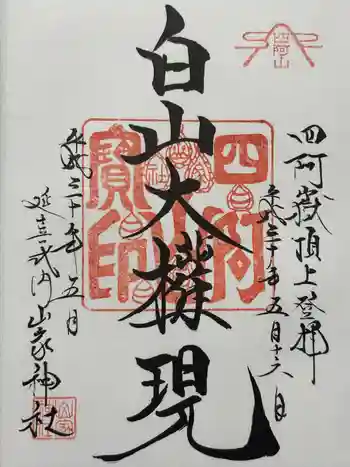 四阿嶽頂上登拝
平成三十年五月十六日
白山大權現
平成三十年五月
延喜式内山家神社
四阿山
寶印